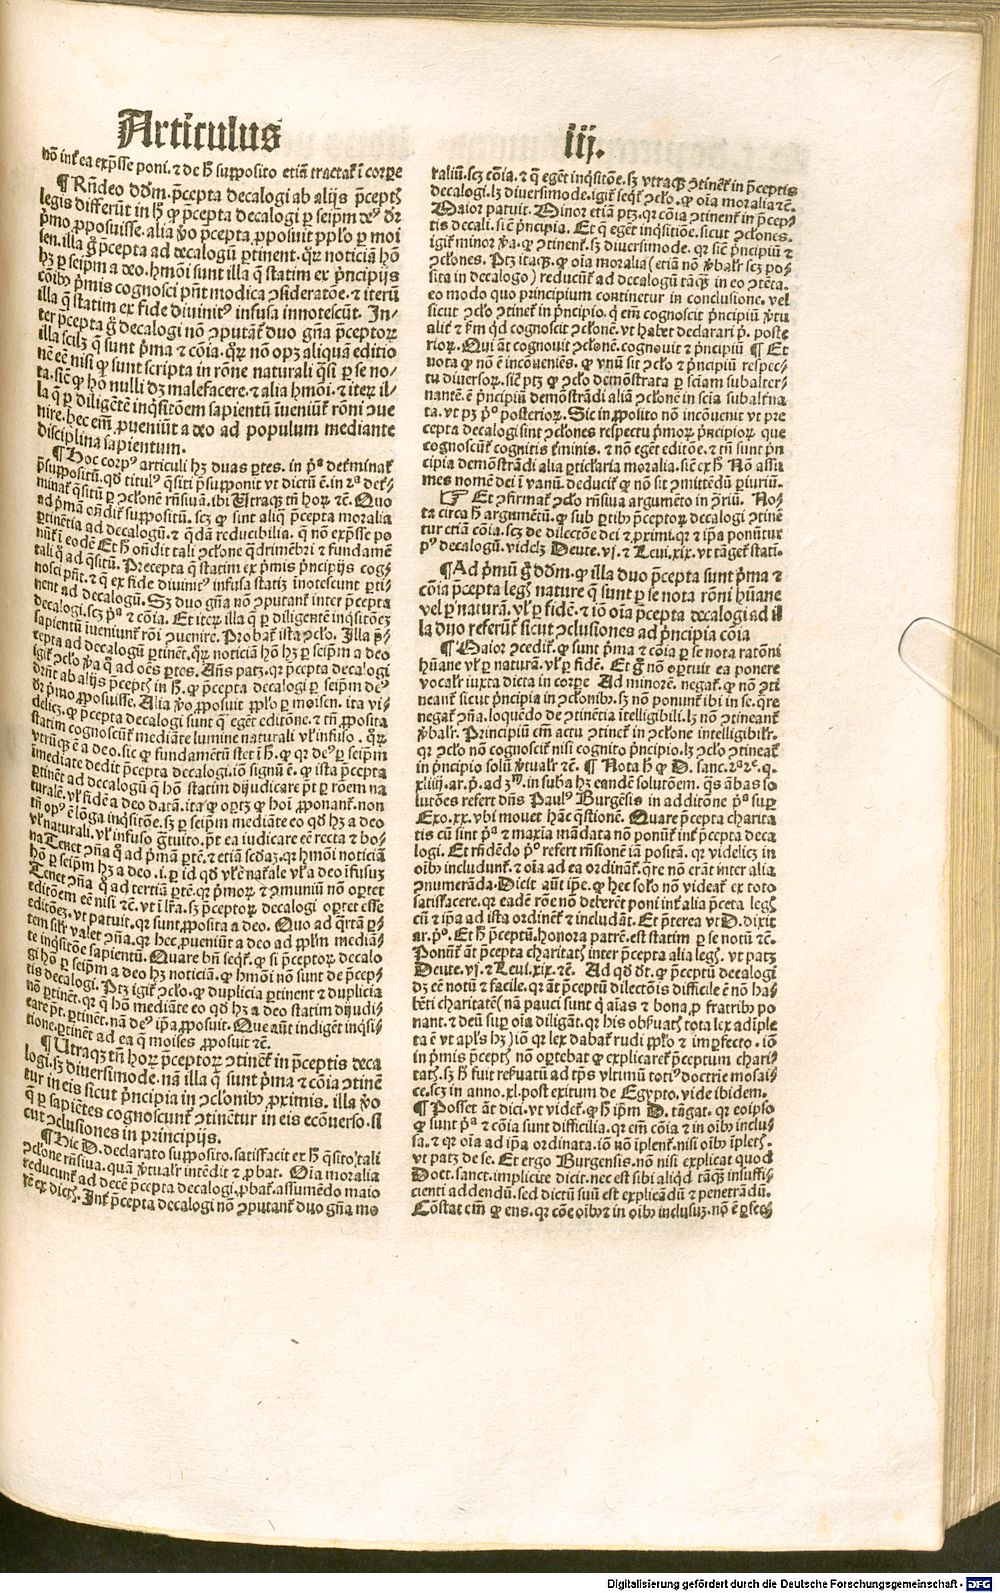 Articulus iij.
nō int̄ ea exp̄sse poni. ⁊ de h̄ supposito etiā tractat̄ ī corpe
¶ Rn̄deo dd̄m. p̄cepta decalogi ab alijs p̄ceptꝭ
legis differūt in h̄ ꝙ p̄cepta decalogi ꝑ seipm̄ deꝰ dr̄
p̄mo ꝓposuisse. alia ꝟo p̄cepta ꝓposuit pplo ꝑ moi
sen. illa gͦ p̄cepta ad decalogū ꝑtinent. qͣꝝ noticiā hō
hꝫ ꝑ seipm̄ a deo. hmōi sunt illa q̄ statim ex p̄ncipijs
cōibꝰ p̄mis cognosci pn̄t modica ꝯsideratōe. ⁊ iterū
illa q̄ statim ex fide diuinitꝰ infusa innotescūt. In-
ter p̄cepta gͦ decalogi nō ꝯputāt̄ duo gn̄a p̄ceptoꝝ
illa scilꝫ q̄ sunt p̄ma ⁊ cōia. qͣꝝ nō opꝫ aliquā editio
nē eē nisi ꝙ sunt scripta in rōne naturali qͣsi ꝑ se no-
ta. sic̄ ꝙ hō nulli dꝫ malefacere. ⁊ alia hmōi. ⁊ iteꝝ il-
la q̄ ꝑ diligētē inq̄sitōem sapientū īueniūt̄ rōni ꝯue
nire. hec em̄ ꝓueniūt a deo ad populum mediante
disciplina sapientum.
¶ Hoc corpꝰ articuli hꝫ duas ꝑtes. in pͣ det̄minat̄
p̄suppositū. qd̄ titulꝰ q̄siti p̄supponit vt dictū ē. in 2ͣ det̄-
minat̄ q̄situ ꝑ ꝯclonē rn̄siuā. ibi Utraqꝫ tn̄ hoꝝ ⁊c̄. Quo
ad p̄mā on̄dit̄ suppositū. scꝫ ꝙ sint aliq̄ p̄cepta moralia
ꝑtinētia ad decalogū. ⁊ q̄dā reducibilia. q̄ nō exp̄sse po
nūt̄ ī eodē Et h̄ on̄dit tali ꝯclone q̄drimēbri ⁊ fundamē
tali qͣ̄ ad q̄situ. Precepta q̄ statim ex p̄mis p̄ncipijs cog
nosci pn̄t. ⁊ q̄ ex fide diuinitꝰ infusa statiꝫ inotescunt ꝑti-
nent ad decalogū. Sꝫ duo gn̄a nō ꝯputant̄ inter p̄cepta
decalogi. scꝫ pͣ ⁊ cōia. Et iteꝝ illa q̄ ꝑ diligentē inq̄sitōeꝫ
sapientū iueniunt̄ rōi ꝯuenire. Probat̄ ista ꝯclo. Illa p̄-
cepta ad decalogū ꝑtinēt. qͣꝝ noticiā hō hꝫ ꝑ seipm̄ a deo
igit̄ ꝯclo ꝟa qͣ̄ ad oēs ꝑtes. An̄s patꝫ. qꝛ p̄cepta decalogi
drn̄t ab alijs p̄ceptꝭ in h̄. ꝙ p̄cepta decalogi ꝑ seipm̄ deꝰ
dr̄ p̄mo ꝓposuisse. Alia ꝟo ꝓposuit pplo ꝑ moisen. ita vi-
delicꝫ. ꝙ p̄cepta decalogi sunt q̄ egēt editōne. ⁊ tn̄ ꝓposita
statim cognoscūt̄ mediāte lumine naturali vl̓ infuso. qͣꝝ
vtrūqꝫ ē a deo. sic ꝙ fundamētū stet ī h̄. ꝙ qꝛ deꝰ ꝑ seipm̄
īmediate dedit p̄cepta decalogi. iō signū ē. ꝙ ista p̄cepta
ꝑtinēt ad decalogū q̄ hō statim dijudicare pt̄ ꝑ rōem na
turalē. vl̓ fidē a deo datā. ita ꝙ oꝑtꝫ ꝙ hoī ꝓponant̄. non
tn̄ opꝰ ē lōga inq̄sitōne. sꝫ ꝑ seipm̄ mediāte eo qd̄ hꝫ a deo
vl̓ naturali. vl̓ infuso gͣtuito. pt̄ ea iudicare eē recta ⁊ bo-
na Tenet ꝯn̄a qͣ̄ ad p̄mā ꝑtē. ⁊ etiā scdaꝫ. qꝛ hmōi noticiā
hō ꝑ seipm̄ hꝫ a deo. i. ꝑ id qd̄ vl̓ ē nat̄ale vl̓ a deo īfusuꝫ
Tenet ꝯn̄a qͣ̄ ad tertiā ꝑtē. qꝛ p̄moꝝ ⁊ ꝯmuniū nō oꝑtet
editōem eē nisi ⁊c̄. vt ī lr̄a. sꝫ p̄ceptoꝝ decalogi oꝑtet esse
editōeꝫ. vt patuit. qꝛ sunt ꝓposita a deo. Quo ad q̄rtā ꝑ-
tem sil̓r valet ꝯn̄a. qꝛ hec ꝓueniunt a deo ad pplm̄ mediā-
te inq̄sitōe sapientū. Quare bn̄ seqͥt̄. ꝙ si p̄ceptoꝝ decalo
gi hō ꝑ seipm̄ a deo hꝫ noticiā. ꝙ hmōi nō sunt de p̄cep-
tis decalogi. Ptꝫ igit̄ ꝯclo. ꝙ duplicia ꝑtinent ⁊ duplicia
nō ꝑtinēt. qꝛ q̄ hō mediāte eo qd̄ hꝫ a deo statim dijudi-
care pt̄. ꝑtinēt. nā deꝰ ip̄a ꝓposuit. Que aūt indigēt inq̄si-
tione. ꝑtinēt ad ea q̄ moises ꝓposuit ⁊c̄.
¶ Utraqꝫ tn̄ hoꝝ p̄ceptoꝝ ꝯtinēt̄ in p̄ceptis deca
logi. sꝫ diuersimode. nā illa q̄ sunt p̄ma ⁊ cōia ꝯtinē
tur in eis sicut p̄ncipia in ꝯclonibꝰ ꝓximis. illa ꝟo
q̄ ꝑ sapiētes cognoscunt̄ ꝯtinētur in eis ecōuerso. si
cut ꝯclusiones in principijs.
¶ Hic D. declarato supposito. satisfacit ex h̄ q̄sito tali
ꝯclone rn̄siua. quā ꝟtualr̄ intēdit ⁊ ꝓbat. Oīa moralia
reducunt̄ ad decē p̄cepta decalogi. ꝓbat̄. assumēdo maio
rē ex dictꝭ. Int̄ p̄cepta decalogi nō ꝯputant̄ duo gn̄a mo
raliū. scꝫ cōia. ⁊ q̄ egēt inq̄sitōe. sꝫ vtraqꝫ ꝯtinēt̄ in p̄ceptis
decalogi. lꝫ diuersimode. igit̄ seqͥt̄ ꝯclo. ꝙ oīa moralia ⁊c̄.
Maior patuit. Minor etiā ptꝫ. qꝛ cōia ꝯtinent̄ in p̄cep-
tis decali. sic̄ p̄ncipia. Et q̄ egēt inq̄sitōne. sicut ꝯclones.
igit̄ minor ꝟa. ꝙ ꝯtinent̄. sꝫ diuersimode. qꝛ sic̄ p̄ncipiū ⁊
ꝯclones. Ptꝫ itaqꝫ. ꝙ oīa moralia (etiā nō ꝟbalr̄ scꝫ po-
sita in decalogo) reducūt̄ ad decalogū tāqꝫ in eo ꝯtēta.
eo modo quo principium continetur in conclusione. vel
sicut ꝯclo ꝯtinet̄ in p̄ncipio. q̄ em̄ cognoscit p̄ncipiū ꝟtu
alit̄ ⁊ km̄ qd̄ cognoscit ꝯclonē. vt habet declarari pͦ. poste
rioꝝ. Qui āt cognouit ꝯclonē. cognouit ⁊ p̄ncipiū ¶ Et
nota ꝙ nō ē incōueniēs. ꝙ vnū sit ꝯclo ⁊ p̄ncipiū respec-
tu diuersoꝝ. sic̄ ptꝫ ꝙ ꝯclo demōstrata ꝑ sciam subalter-
nantē. ē p̄ncipiū demōstrādi aliā ꝯclonē in scia subalt̄na
ta. vt pꝫ pͦ posterioꝝ. Sic in ꝓposito nō incōuenit vt pre
cepta decalogi sint ꝯclones respectu p̄moꝝ p̄ncipioꝝ que
cognoscūt̄ cognitis t̄minis. ⁊ nō egēt editōe. ⁊ tn̄ sunt p̄n
cipia demōstrādi alia ꝑticlaria moralia. sic̄ ex h̄ Nō assu
mes nomē dei ī vanū. deducit̄ ꝙ nō sit ꝯmittēdū ꝑiuriū.
☞ Et ꝯfirmat̄ ꝯclo rn̄siua argumēto in ꝯriū. No-
ta circa h̄ argumētū. ꝙ sub ꝑtibꝰ p̄ceptoꝝ decalogi ꝯtinē
tur etiā cōia. scꝫ de dilectōe dei ⁊ ꝓximi. qꝛ ⁊ ip̄a ponūtur
pꝰ decalogū. videlꝫ Deute. vj. ⁊ Leui. xix. vt tāget̄ stati.
¶ Ad p̄mū gͦ dd̄m. ꝙ illa duo p̄cepta sunt p̄ma ⁊
cōia p̄cepta legꝭ nature q̄ sunt ꝑ se nota rōni hūane
vel ꝑ naturā. vl̓ ꝑ fidē. ⁊ iō oīa p̄cepta decalogi ad il
la duo referūt̄ sicut ꝯclusiones ad p̄ncipia cōia
¶ Maior ꝯcedit̄. ꝙ sunt p̄ma ⁊ cōia ꝑ se nota ratōni
hūane vl̓ ꝑ naturā. vl̓ ꝑ fidē. Et gͦ nō oꝑtuit ea ponere
vocalr̄ iuxta dicta in corpe Ad minorē. negat̄. ꝙ nō ꝯti
neant̄ sicut p̄ncipia in ꝯclonibꝰ. sꝫ nō ponunt̄ ibi in se. qͣre
negat̄ ꝯn̄a. loquēdo de ꝯtinētia ītelligibili. lꝫ nō ꝯtineant̄
ꝟbalr̄. Principiū em̄ actu ꝯtinet̄ in ꝯclone intelligibilr̄.
qꝛ ꝯclo nō cognoscit̄ nisi cognito p̄ncipio. lꝫ ꝯclo ꝯtineat̄
in p̄ncipio solū ꝟtualr̄ ⁊c̄. ¶ Nota h̄ ꝙ D. sanc. 2ͣ2ͤ. q.
xliiij. ar. pͦ. ad 3ᵐ. in sub̄a hꝫ eandē solutōem. quas ābas so
lutōes refert dn̄s Paulꝰ Burgēsis in additōne pͣ suꝑ
Exo. xx. vbi mouet hāc q̄stionē. Quare p̄cepta charita
tis cū sint pͣ ⁊ maxīa mādata nō ponūt̄ int̄ p̄cepta deca
logi. Et rn̄dēdo pͦ refert rn̄sionē iā positā. qꝛ videlicꝫ in
oībꝰ includunt̄. ⁊ oīa ad ea ordināt̄. qͣre nō erāt inter alia
ꝯnumerāda. Dicit aūt ip̄e. ꝙ hec solo nō videat̄ ex toto
satisfacere. qꝛ eadē rōe nō deberēt poni int̄ alia p̄ceta legꝭ
cū ⁊ ip̄a ad ista ordinēt̄ ⁊ includāt. Et p̄terea vt D. dixit
ar. pͦ. Et h̄ p̄ceptū. honora patrē. est statim ꝑ se notū ⁊c̄.
Ponūt̄ āt p̄cepta charitatꝭ inter p̄cepta alia legꝭ. vt patꝫ
Deute. vj. ⁊ Leui. xix. ⁊c̄. Ad qd̄ dt̄. ꝙ p̄ceptū decalogi
dꝫ eē notū ⁊ facile. qꝛ āt p̄ceptū dilectōis difficile ē nō ha-
bēti charitatē (nā pauci sunt qͥ aīas ⁊ bona ꝓ fratribꝰ po
nant. ⁊ deū suꝑ oīa diligāt. qꝛ his obẜuatꝭ tota lex adīple
ta ē vt apl̓s hꝫ) iō qꝛ lex dabat̄ rudi pplo ⁊ imꝑfecto. iō
in p̄mis p̄ceptꝭ nō oꝑtebat ꝙ explicaret̄ p̄ceptum chari-
tatꝭ. sꝫ h̄ fuit reẜuatū ad tp̄s vltimū totiꝰ doctrie mosai-
ce. scꝫ in anno. xl. post exitum de Egypto. vide ibidem.
¶ Posset āt dici. vt videt̄. ꝙ h̄ ip̄m D. tāgat. qꝛ eoipso
ꝙ sunt pͣ ⁊ cōia sunt difficilia. qꝛ em̄ cōia ⁊ in oībꝰ inclu-
sa. ⁊ qꝛ oīa ad ip̄a ordinata. iō nō īplent̄. nisi oībꝰ īpletꝭ.
vt patꝫ de se. Et ergo Burgensis. nō nisi explicat quod
Doct. sanct. implicite dicit. nec est sibi aliqd̄ tāqꝫ insuffi-
cienti addendū. sed dictū suū est explicādū ⁊ penetrādū.
Cōstat em̄ ꝙ ens. qꝛ cōe oībꝰ ⁊ in oībꝰ inclusuꝫ. nō ē ꝑ sectꝭ
Digitalisierung gefördert durch die Deutsche Forschungsgemeinschaft - DFG